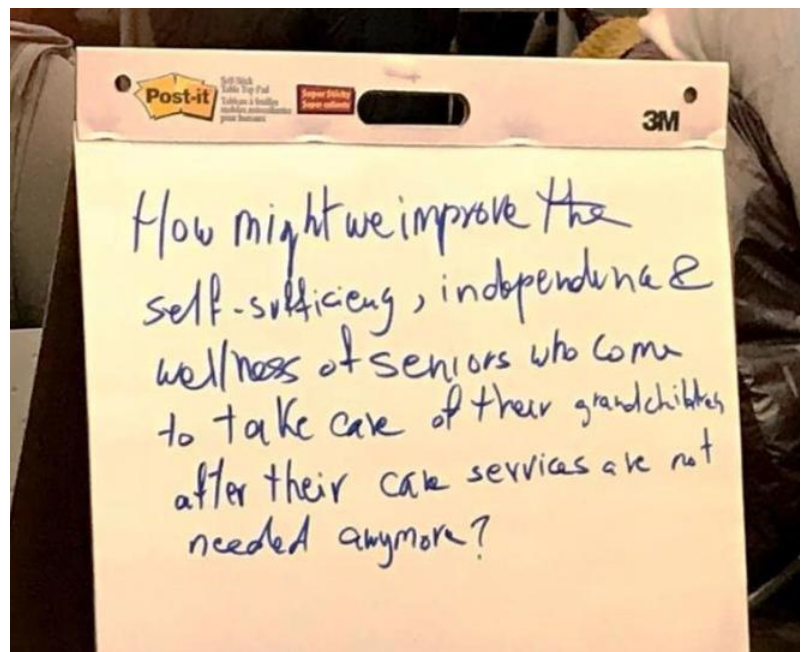 Post-it
Self-Stick
Table Top Pad
Super Sticky
3M
How might we improve the
self-sufficiency, independence &
wellness of seniors who come
to take care of their grandchildren
after their care services are not
needed anymore?